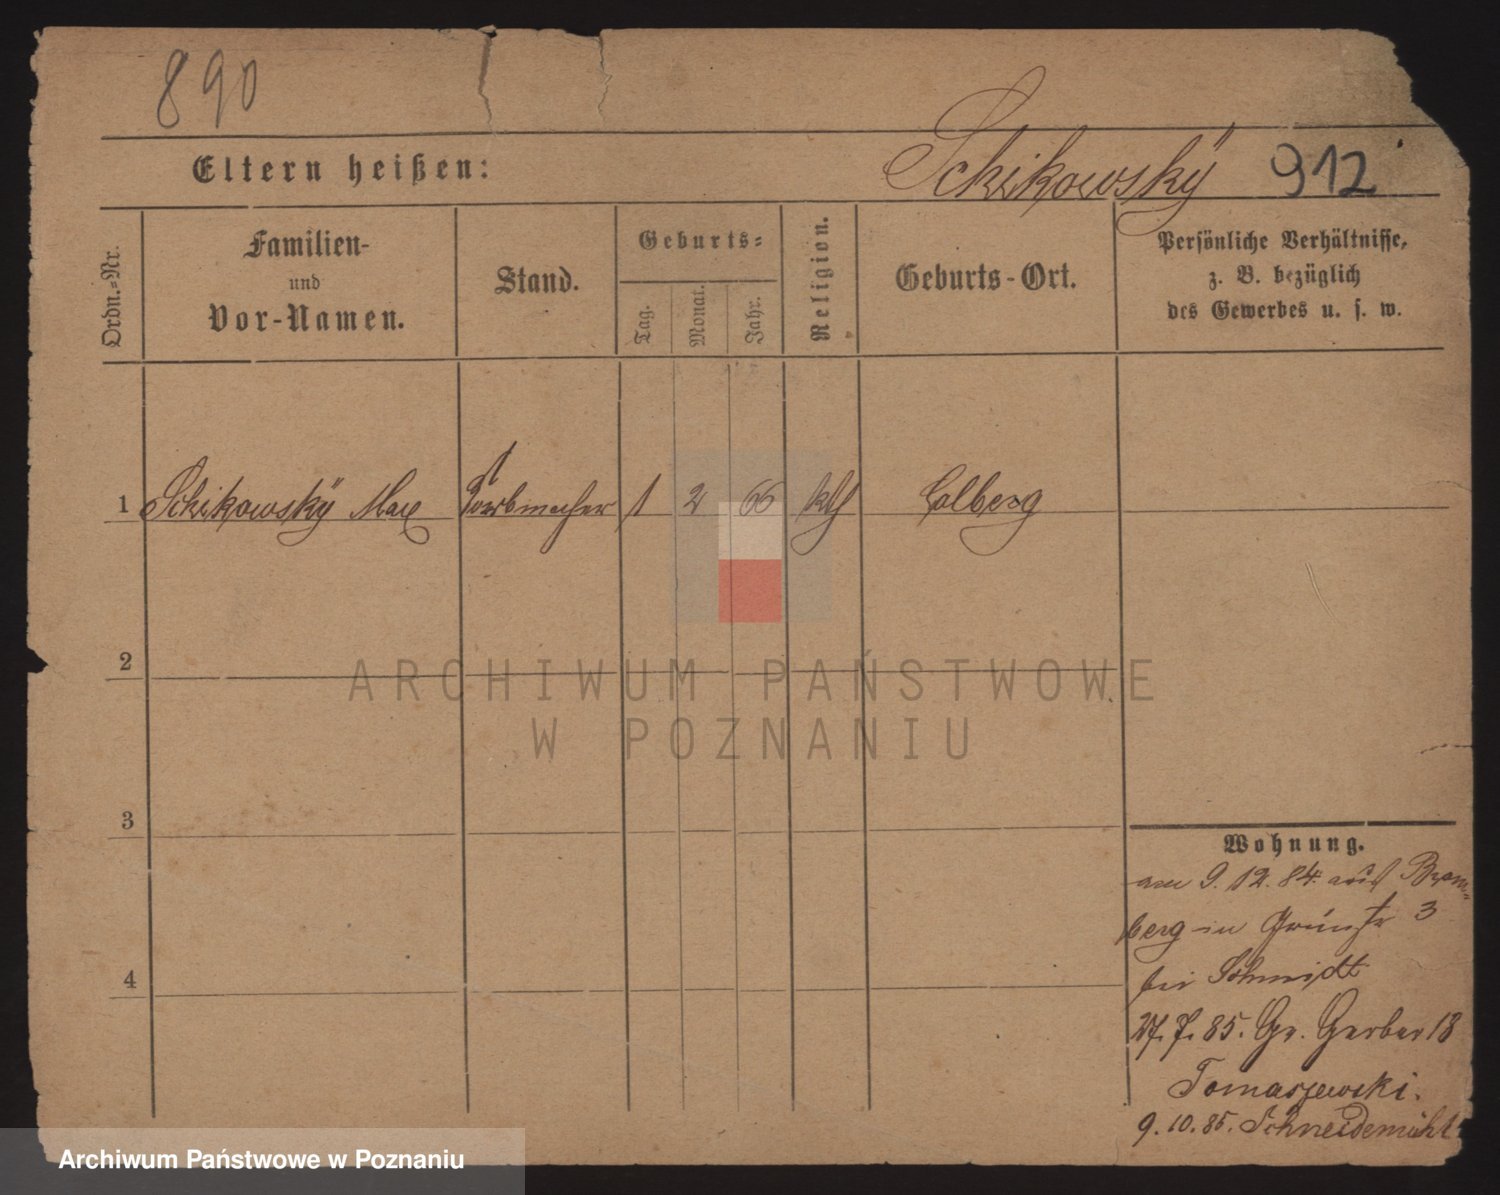 890
Eltern heißen: Schikowskÿ 912
Ordn.-Nr.
Familien-
und
Vor-Namen.
Stand.
Geburts-
Tag.
Monat.
Jahr.
Religion.
Geburts-Ort.
Persönliche Verhältnisse,
z. B. bezüglich
des Gewerbes u. s. w.
1 Schikowskÿ Max Korbmacher 1 2 66 kth Colberg
2
3
4
Wohnung.
am 9. 12. 84. aus Brom-
berg in Grünstr 3
bei Schmidt
27. 7. 85. Gr. Gerber 18
Tomaszewski.
9. 10. 85. Schneidemühl
ARCHIWUM PAŃSTWOWE
W POZNANIU
Archiwum Państwowe w Poznaniu